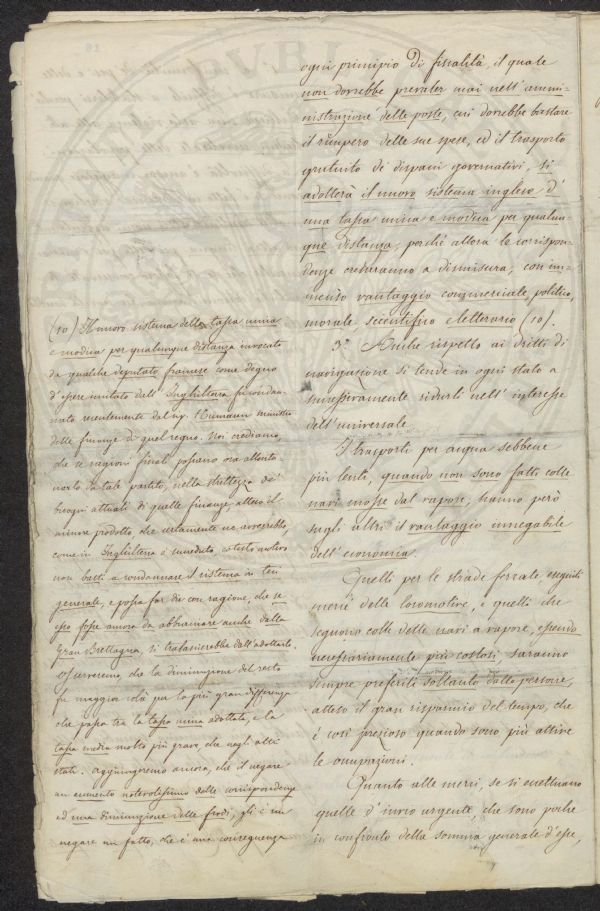 ogni principio di fiscalità, il quale
non dovrebbe prevaler mai nell'ammi-
nistrazione delle poste, cui dovrebbe bastare
il rimpero delle sue spese, ed il trasporto
gratuito di dispacci governativi, si
adotterà il nuovo sistema inglese d'
una tassa unica e modica per qualun-
que distanza, perchè allora le corrispon-
denze cresceranno a dismisura, con im-
menso vantaggio commerciale, politico,
morale scientifico e letterario (10).
3.° Anche rispetto ai diritti di
navigazione si tende in ogni stato a
successivamente ridurli nell'interesse
dell'universale.
I trasporti per acqua sebbene
più lenti, quando non sono fatti colle
navi mosse dal vapore, hanno però
sugli altri il vantaggio innegabile
dell'economia.
Quelli per le strade ferrate, eseguiti
mercè delle locomotive, e quelli che
seguono colle delle navi a vapore, essendo
necessariamente più costosi, saranno
sempre preferiti soltanto dalle persone,
atteso il gran risparmio del tempo, che
è così prezioso quando sono più attive
le occupazioni.
Quanto alle merci, se si eccettuano
quelle d'invio urgente, che sono poche
in confronto della somma generale d'esse,
(10) Il nuovo sistema della tassa unica
e modica per qualunque distanza invocato
da qualche deputato francese come degno
d'essere imitato dall'Inghilterra fu condan-
nato recentemente dal sig. Humann ministro
delle finanze di quel regno. Noi crediamo,
che se ragioni fiscali possano ora allonta-
narlo da tale partito, nella strettezza de'
bisogni attuali di quelle finanze, atteso il
minore prodotto, che certamente ne avverrebbe,
come in Inghilterra è succeduto, cotesto motivo
non basti a condannare il sistema in tesi
generale, e possa far dire con ragione, che se
esso fosse ancora da abbracciare anche dalla
Gran Brettagna, si tralascierebbe dall'adottarlo.
Osserveremo, che la diminuzione del resto
fu maggior colà per la più gran differenza
che passa tra la tassa unica adottata, e la
tassa media molto più grave, che negli altri
stati. Aggiungeremo ancora, che il negare
un aumento notevolissimo delle corrispondenze
ed una diminuzione delle frodi, gli è un
negare un fatto, che è una conseguenza